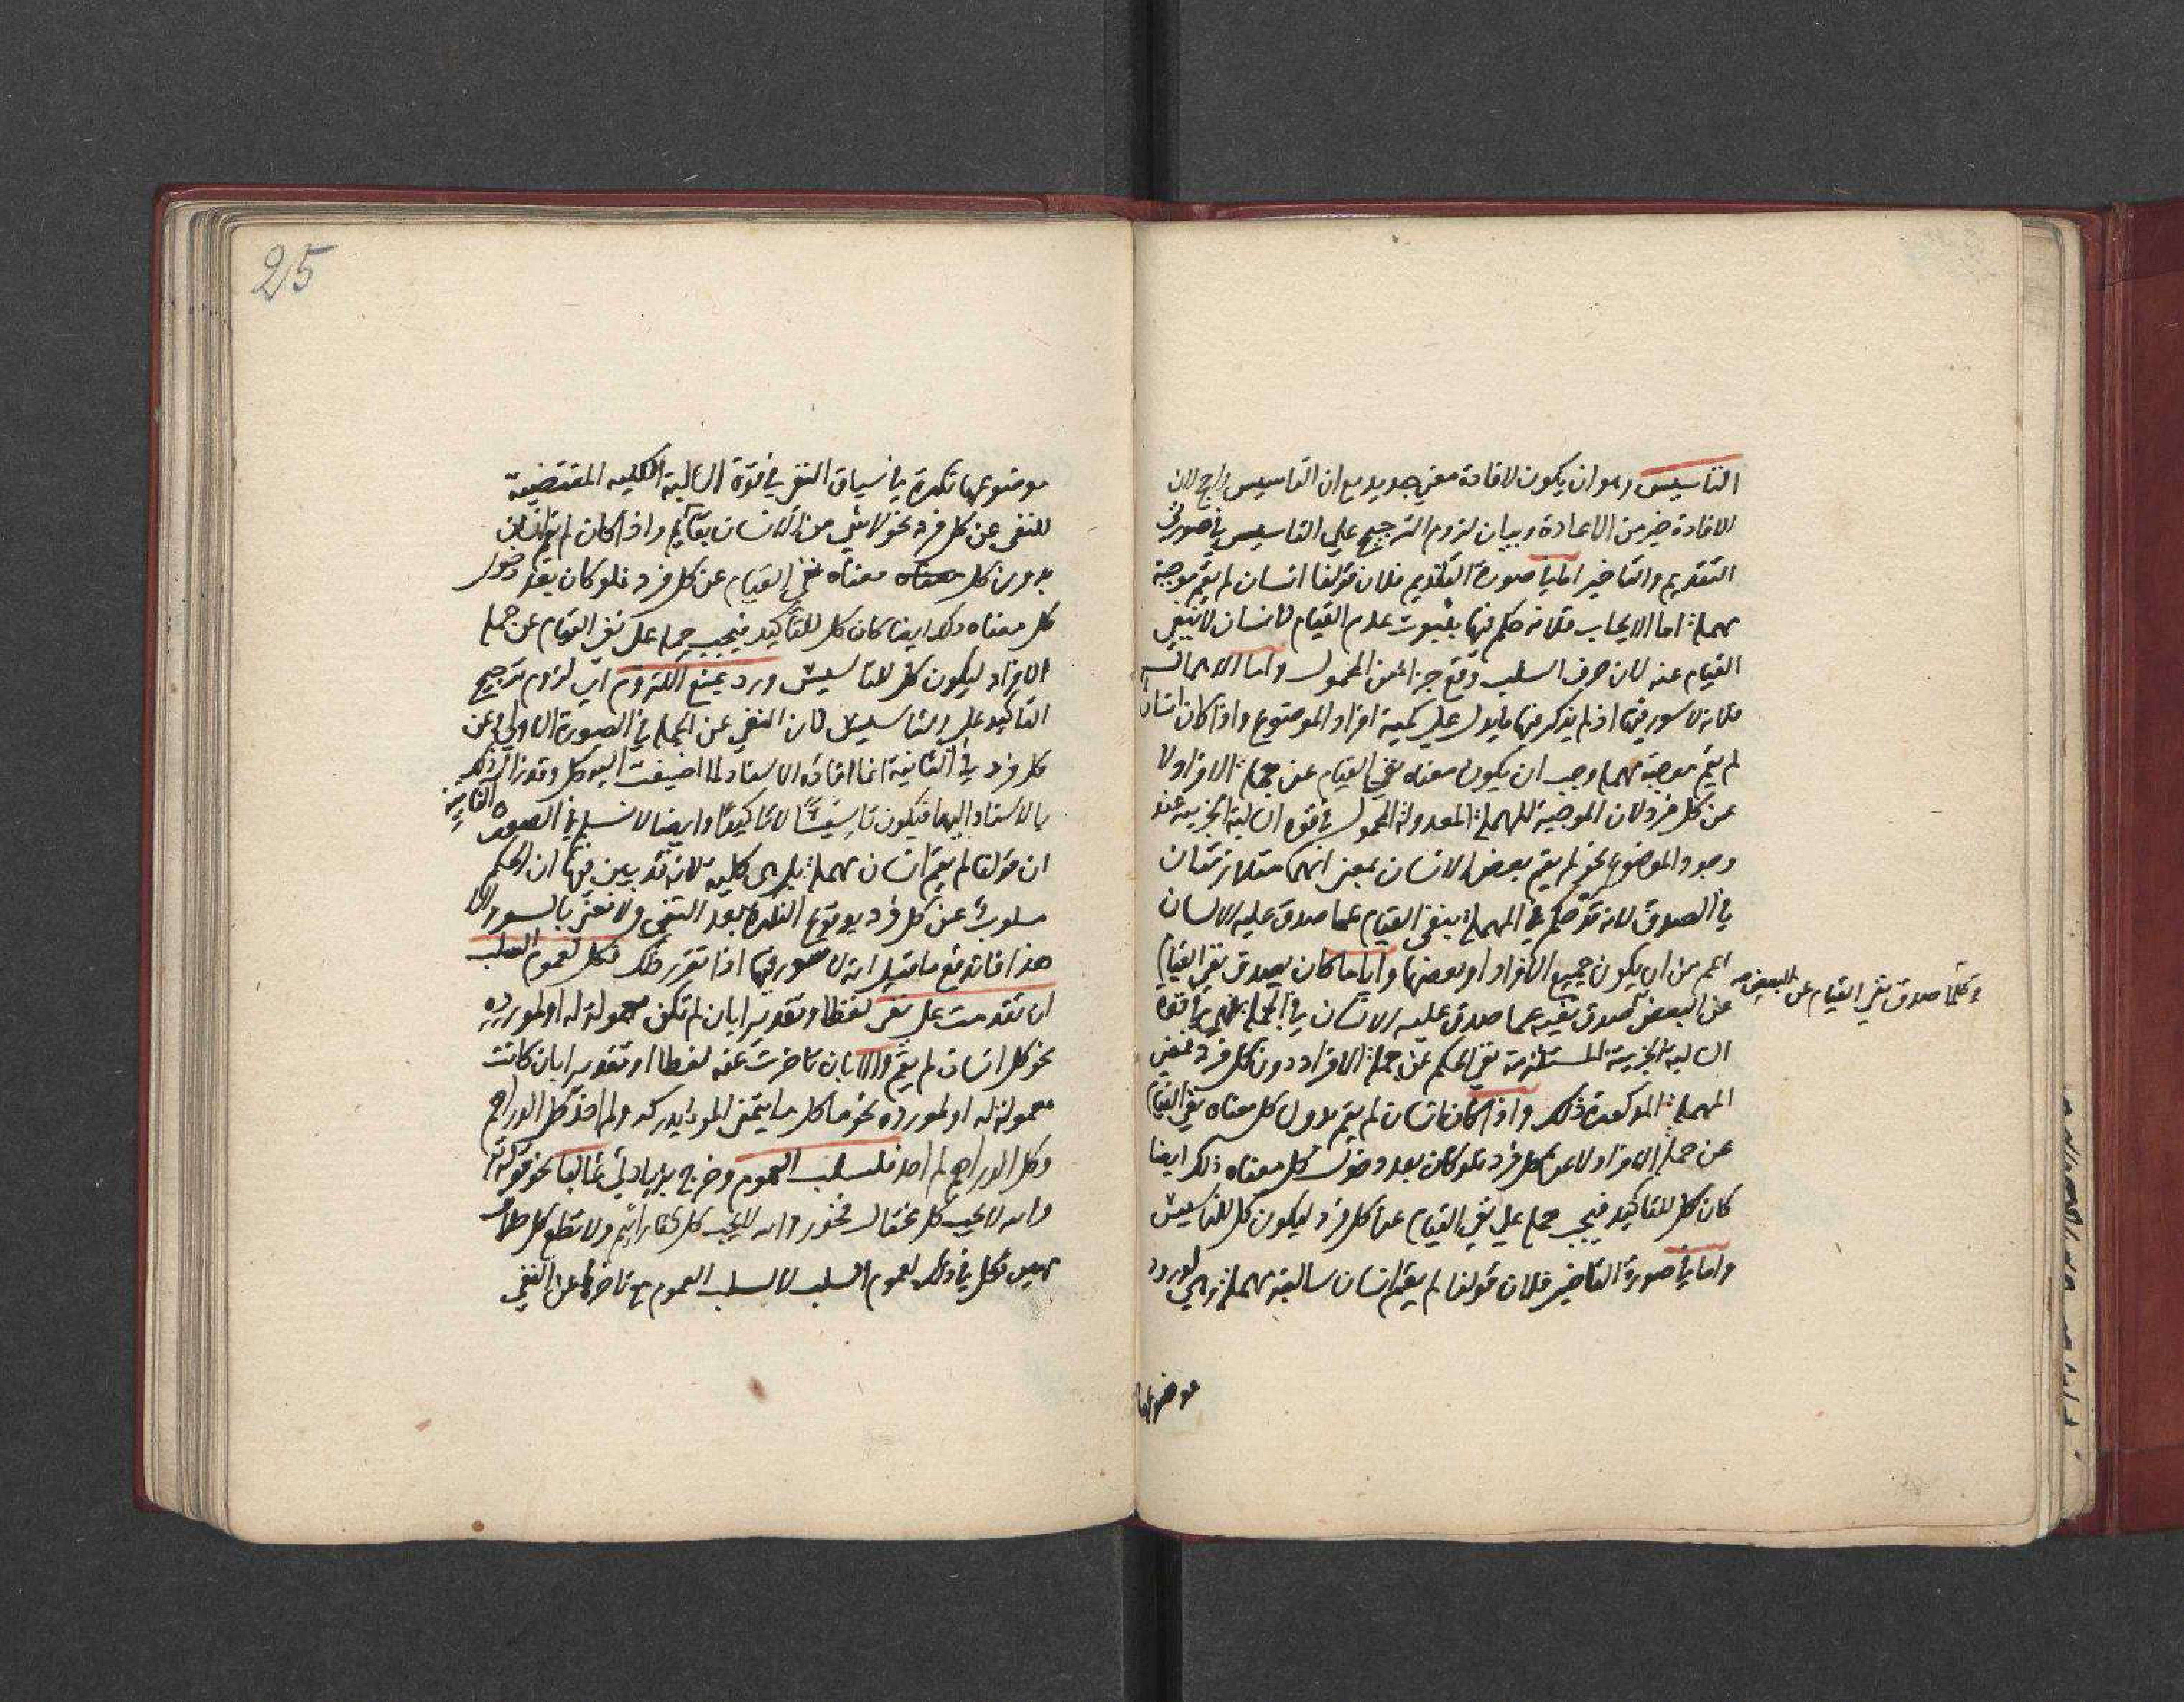 التاسيس وهو ان يكون لافادة معني جديد مع ان التاسيس راجح لان
الافادة خير من الاعادة وبيان لزوم الترجيح علي التاسيس في صورتي
التقديم والتاخير اما في صورة التقديم فلان قولنا انسان لم يقم موجبة
مهملة اما الايجاب فلانه حكم فيها بثبوت عدم القيام لانسان لا بنفي
القيام عنه لان حرف السلب وقع جزأ من المحمول واما الاهمال
فلانه لا سور فيها اذ لم يذكر فيها ما يدل علي كمية افراد الموضوع واذا كان انسان
لم يقم موجبة مهملة وجب ان يكون معناه نفي القيام عن جملة الافراد لا
عن كل فرد لان الموجبة المهملة المعدولة المحمول في قوة السالبة الجزيية عند
وجود الموضوع نحو لم يقم بعض الانسان بمعني انهما متلازمتان
في الصدق لانه قد حكم في المهملة بنفي القيام عما صدق عليه الانسان
اعم من ان يكون جميع الافراد او بعضها واياما كان يصدق نفي القيام
وكلما صدق نفي القيام عن البعض
عن البعض صدق نفيه عما صدق عليه الانسان في الجملة فهي في قوة
السالبة الجزيية المستلزمة نفي الحكم عن جملة الافراد دون كل فرد فمعني
المهملة المذكورة ذلك واذا كان انسان لم يقم بدون كل معناه نفي القيام
عن جملة الافراد لا عن كل فرد فلو كان بعد دخول كل معناه ذلك ايضا
كان كل للتاكيد فيجب حمله علي نفي القيام عن كل فرد ليكون كل للتاسيس
واما في صورة التاخير فلان قولنا لم يقم انسان سالبة مهملة وهي لورود
موضوعها
25
موضوعها نكرة في سياق النفي في قوة السالبة الكلية المقتضية
للنفي عن كل فرد نحو لا شي من الانسان بقايم واذا كان لم يقم انسان
بدون كل معناه نفي القيام عن كل فرد فلو كان بعد دخول
كل معناه ذلك ايضا كان كل للتاكيد فيجب حمله علي نفي القيام عن جملة
الافراد ليكون كل للتاسيس ورد بمنع اللزوم اي لزوم ترجيح
التاكيد علي التاسيس لان النفي عن الجملة في الصورة الاولي وعن
كل فرد في الثانية انما افاده الاسناد لما اضيفت اليه كل وقد زال ذلك
بالاسناد اليها فيكون تاسيسًا لا تاكيدًا وايضا لا نسلم في الصورة الثانية
ان قولنا لم يقم انسان مهملة بل هي كلية لانه قد بين فيها ان الحكم
مسلوب عن كل فرد بوقوع النكرة بعد النفي ولا نعني بالسور الا
هذا فاندفع ما قيل انه لا سور فيها اذا تقرر ذلك فكل لعموم السلب
ان تقدمت علي نفي لفظا وتقديرا بان لم تكن معمولة له او لمورده
نحو كل انسان لم يقم والا بان تاخرت عنه لفظا او تقديرا بان كانت
معمولة له او لمورده نحو ما كل ما يتمني المرء يدركه ولم اخذ كل الدراهم
وكل الدراهم لم اخذ فلسلب العموم وخرج بزيادتي غالبا نحو قوله تع
والله لا يحب كل مختال فخور والله لا يحب كل كفار اثيم ولا تطع كل حلاف
مهين فكل في ذلك لعموم السلب لا لسلب العموم مع تاخرها عن النفي